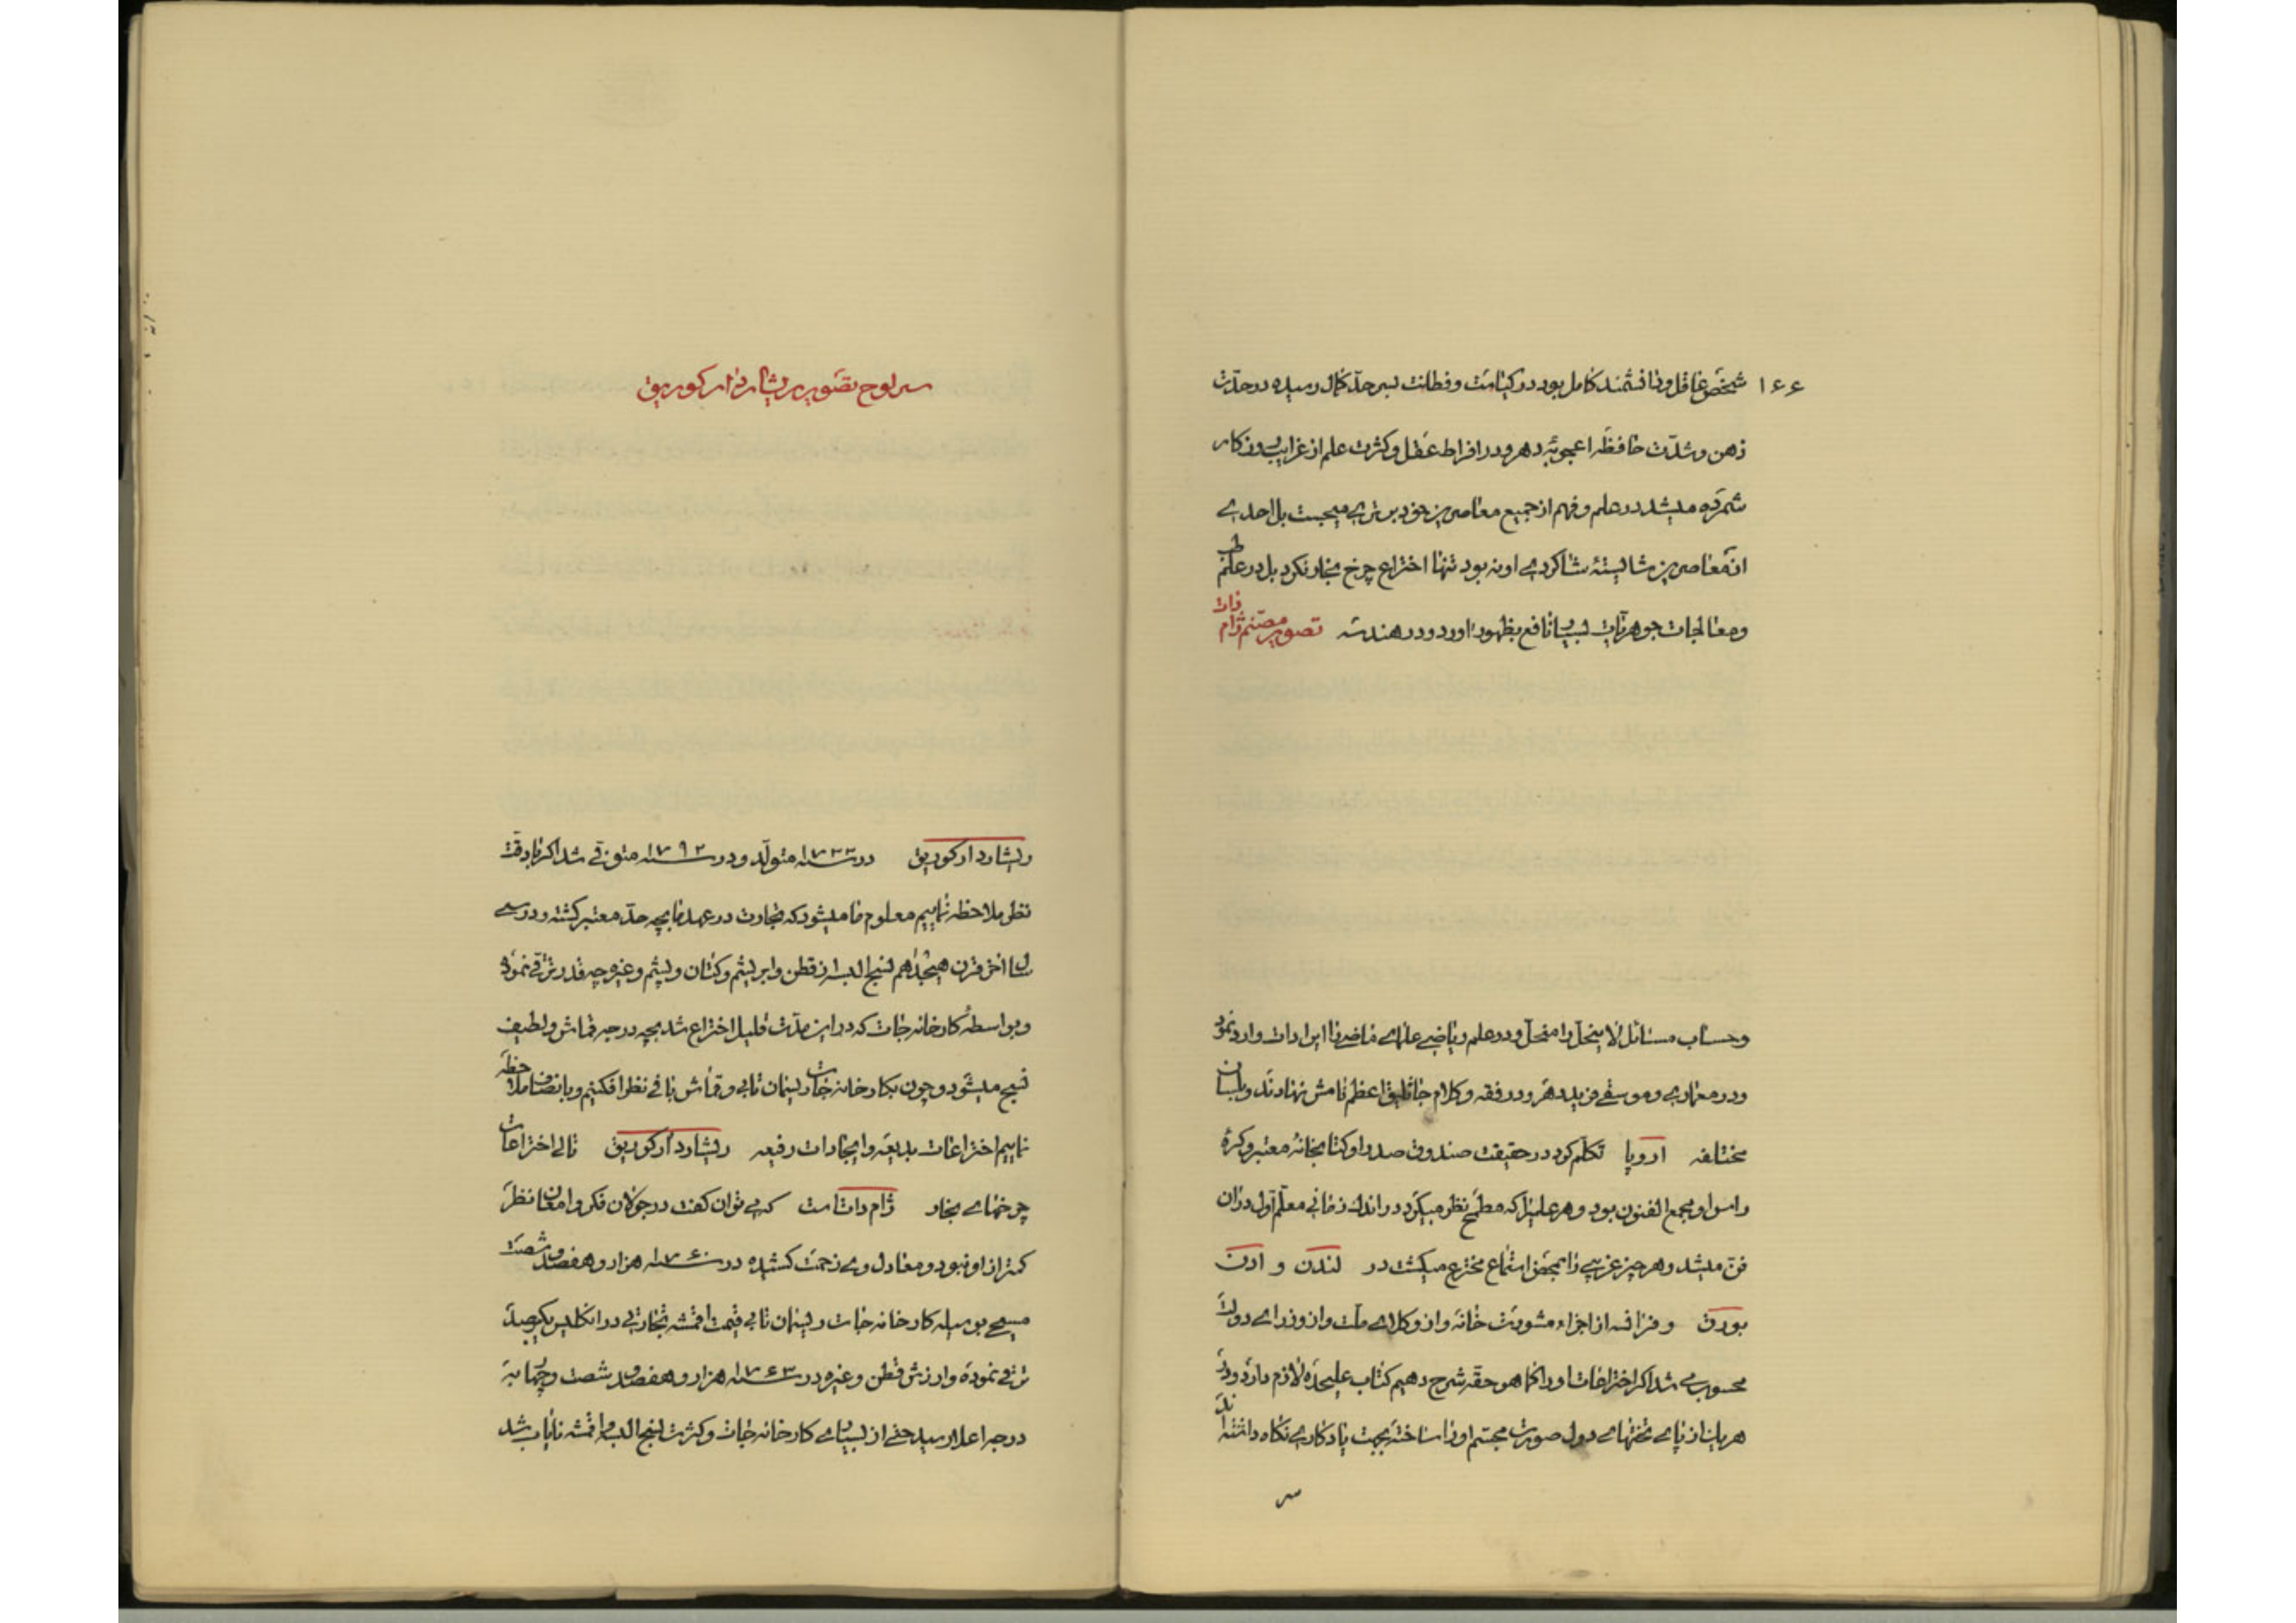 ۱۶۶
شخص عاقل و دانشمند کامل بود در کیاست و فطانت بسر حد کمال رسیده در حدّت
ذهن و شدّت حافظه اعجوبهٔ دهر و در افراط عقل و کثرت علم از غرایب روزکار
شمرده میشد در علم و فهم از جمیع معاصرین خود برتری میجست بل احدی
از معاصرین شایستهٔ شاکردی او نه بود تنها اختراع چرخ بخار نکرد بل در علم طب
و معالجات جوهریات بسیار نافع بظهور آورد و در هندسه تصویر مصنم ژام وات
و حساب مسائل لا ینحل را منحل و در علم ریاضی علمای ماضی را ایرادات وارد نمود
و در معماری و موسقی فرید دهر و در فقه و کلام جاثلیق اعظم نامش نهادند و بلسان
مختلفه اروپا تکلم کرد در حقیقت صندوق صدر او کتابخانهٔ معتبر و کرهٔ
راس او مجمع الفنون بود و هر علمیرا که مطمح نظر میکرد در اندک زمانی معلم اول دران
فن میشد و هر چیز غریبی را بمحض استماع مخترع میکشت در لندن و ادن
بورق و فرانسه از اجزاء مشورت خانه و از وکلای ملت و از وزرای دولت
محسوب می شد اکر اختراعات او را کما هو حقه شرح دهیم کتاب علیحده لازم دارد و در
هر یک از پای تختهای دول صورت مجسم او را ساخته بجهت یادکاری نکاه داشته اند
سر
سر لوح تصویر ریشارد ارکوریق
ریشارد ارکوریق در سنه ۱۷۳۲ متولد و در سنه ۱۷۹۲ متوفی شد اکر با دقت
نظر ملاحظه نماییم معلوم ما میشود که تجارت در عهد ما بچه حد معتبر کشته و در سی
سال اخر قرن هیجدهم نسج البسه از قطن و ابریشم و کتان و پشم و غیره چه قدر ترقی نموده
و بواسطهٔ کارخانه جات که در این مدّت قلیل اختراع شد بچه درجه قماش و لطیف
نسج میشود و چون بکارخانه جات ریسمان تابی و قماش بافی نظر افکنیم و بانصاف ملاحظه
نماییم اختراعات بدیعه و ایجادات رفیعه ریشارد ارکوریق تالی اختراعات
چرخهای بخار ژام وات است که می توان کفت در جولان فکر و امعان نظر
کمتر از او نبود و معادل وی زحمت کشیده در سنه ۱۷۶۰ هزار و هفصد و شصت
مسیحی بوسیله کارخانه جات ریسمان تابی قیمت اقمشه تجارتی در انکلیس یکیرصد
ترقی نموده و ارزش قطن و غیره در سنه ۱۷۶۳ هزار و هفصد و شصت و چهار به
درجه اعلا رسید حتی از بسیاری کارخانه جات و کثرت نسج البسه و اقمشه نایاب شد